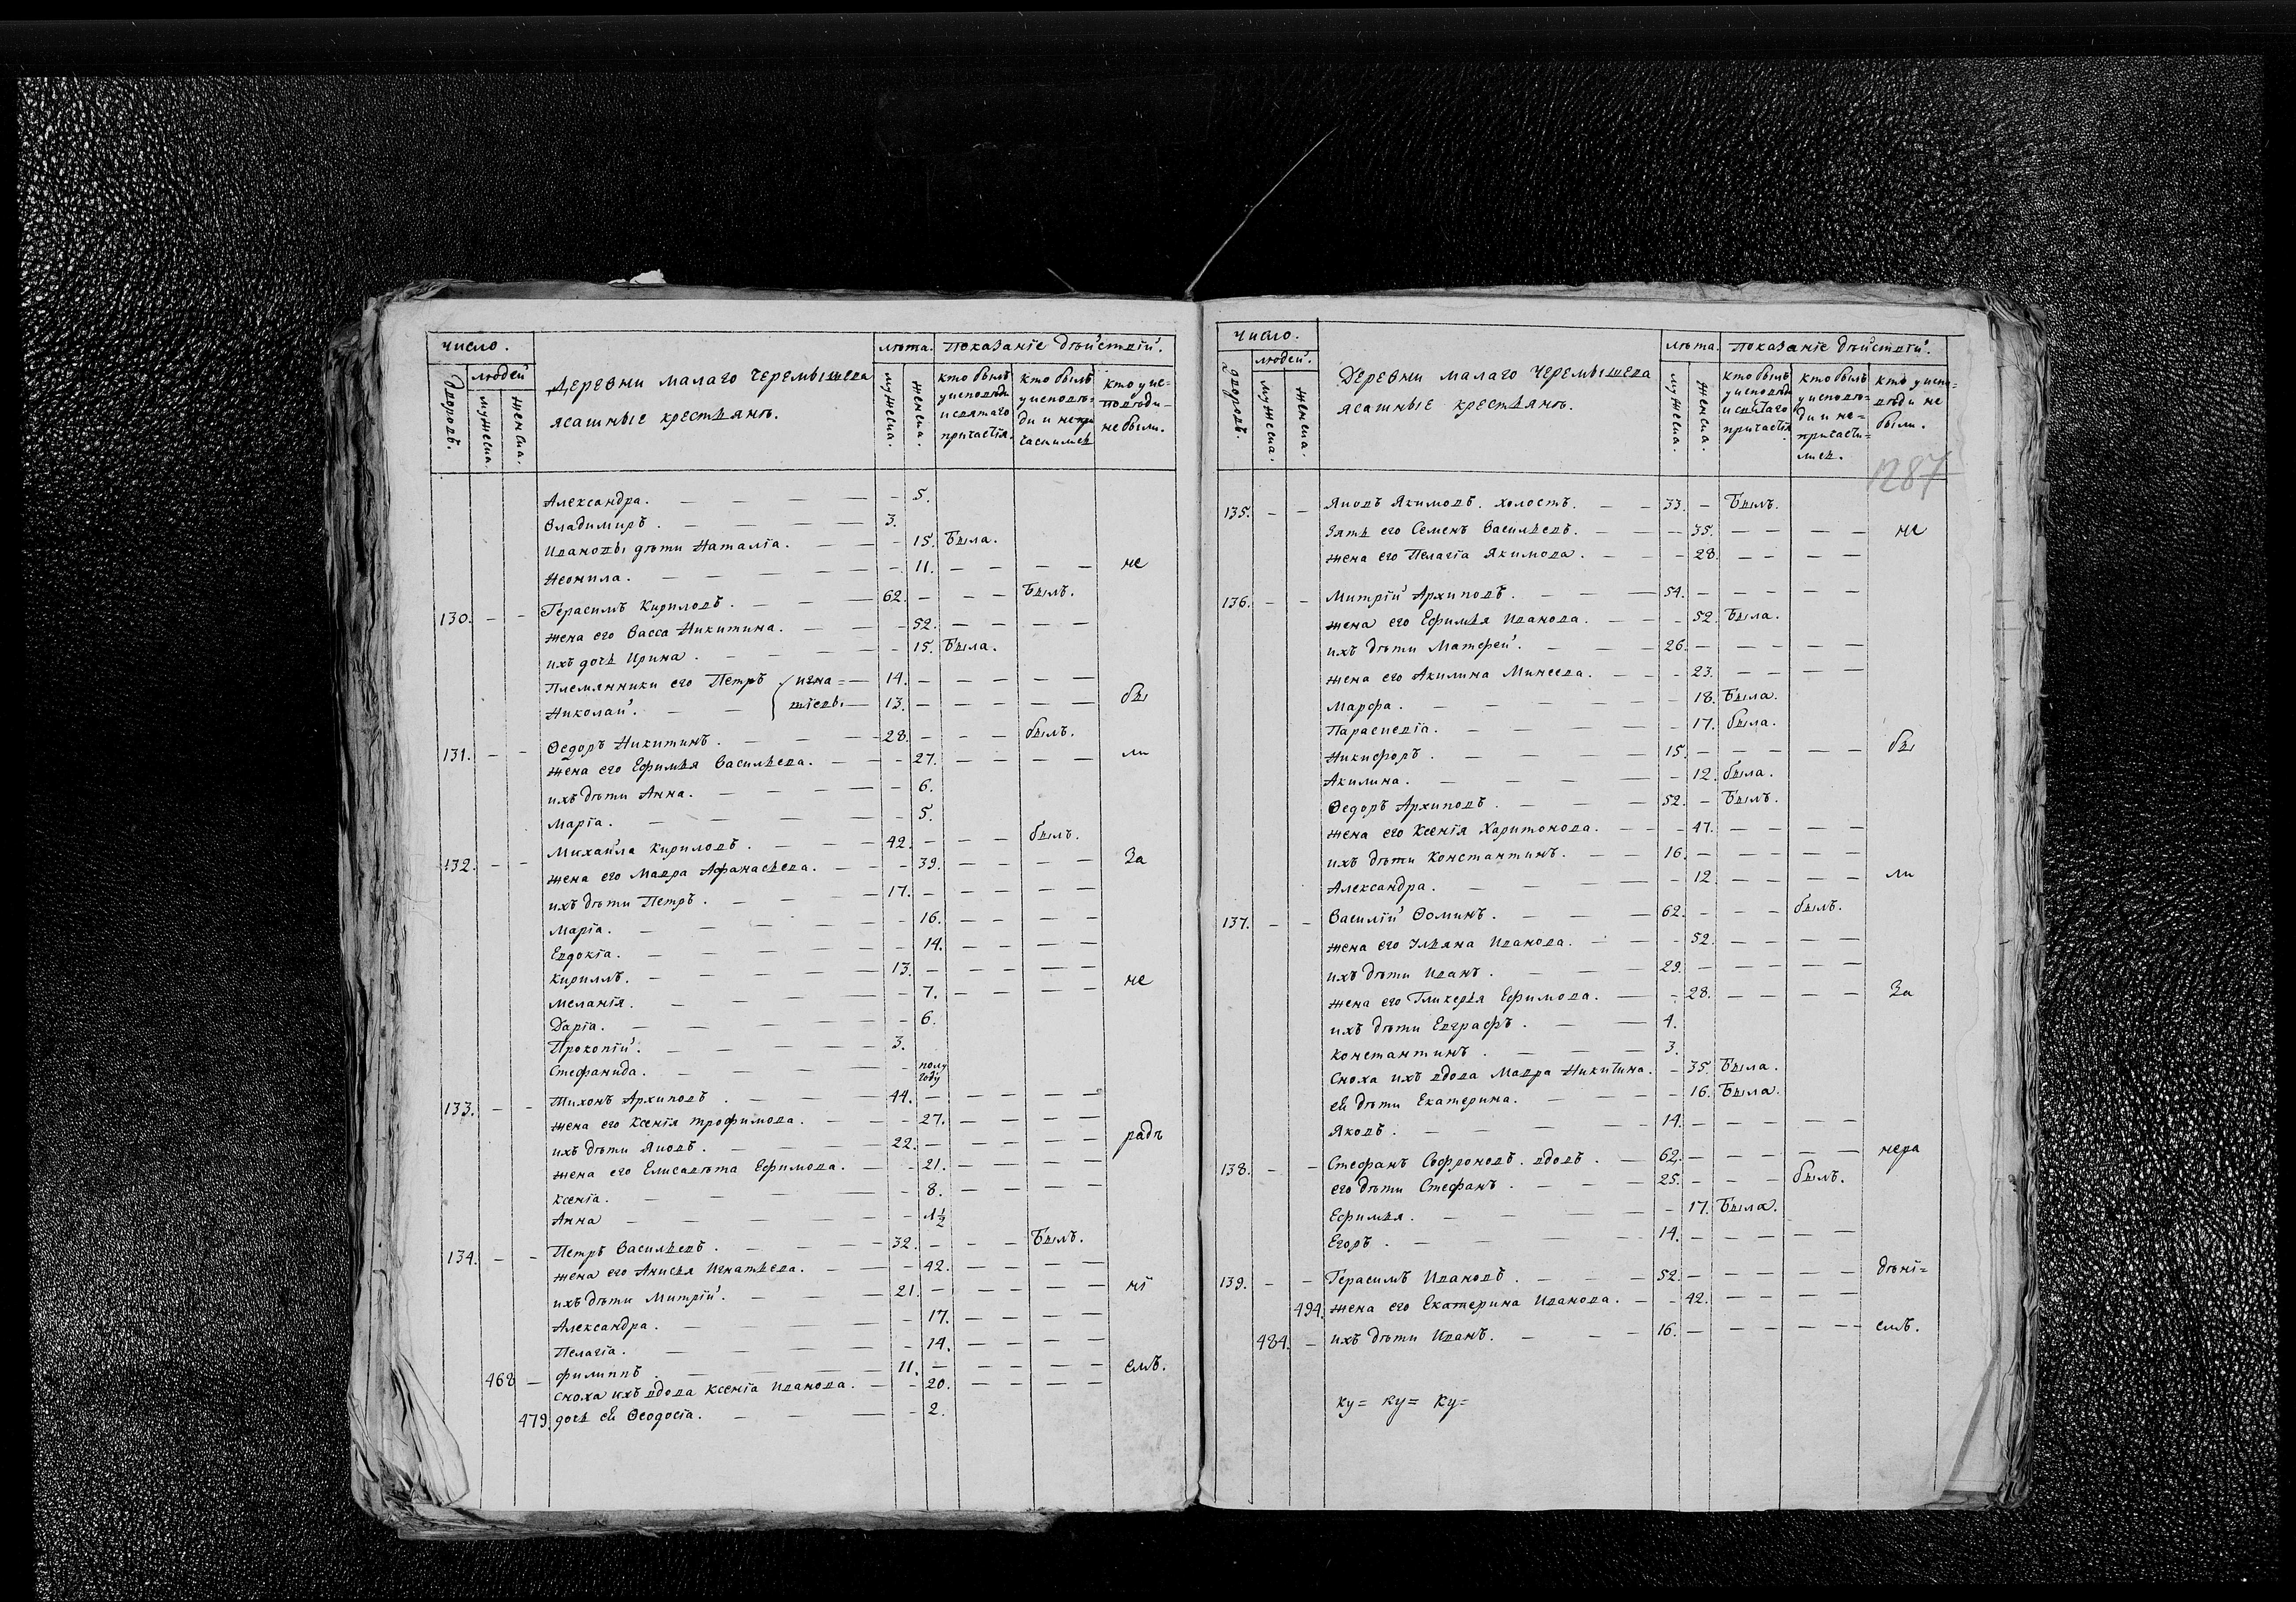 число.
лѣта. показаніе дѣйствій.
дворовъ.
людей
мужеска.
женска.
Деревни малаго Черемышева
ясашные крестьянъ.
мужеска.
женска.
кто былъ
у исповѣди
и святаго
причастія.
кто былъ
у исповѣ=
ди и непри
частился
кто у ис=
повѣди-
не были.
Александра. — — — — - 5.
Владимиръ. — — — — 3.
Ивановы дѣти Наталіа. — — - 15. Была.
Неонила. — — — — - 11. — — — — не
130. - - Герасимъ Кириловъ. — — — 62. — — — Былъ.
жена его Васса Никитина. — — - 52. — — — —
ихъ дочь Ирина. — — — - 15. Была.
Племянники его Петръ игна=— 14. — — — — —
Николай. — — тіевы— 13. — — — — — бы
131. - - Ѳедоръ Никитинъ. — — — 28. — — — былъ.
жена его Ефимья Васильева. — - 27. — — — — ли
ихъ дѣти Анна. — — — - 6.
Маріа. — — — — - 5.
132. - - Михайла Кириловъ. — — — 42. — — — былъ.
жена его Мавра Афанасьева. — - 39. — — — — За
ихъ дѣти Петръ. — — — 17. — — — — —
Маріа. — — — — - 16. — — — —
Евдокіа. — — — — - 14. — — — —
Кириллъ. — — — — 13. — — — — —
Меланія. — — — — - 7. — — — — не
Даріа. — — — — - 6.
Прокопій. — — — — 3.
Стефанида. — — — — - полу
году
133. - - Тихонъ Архиповъ. — — — 44. — — — — —
жена его Ксеніа Трофимова. — - 27. — — — —
ихъ дѣти Яковъ. — — — 22. — — — — — радѣ
жена его Елисавѣта Ефимова. — - 21. — — — —
Ксеніа. — — — — - 8. — — — —
Анна — — — — - 1½
134. - - Петръ Васильевъ. — — — 32. — — — Былъ.
жена его Анисья Игнатьева. — - 42. — — — —
ихъ дѣти Митрій. — — — 21. — — — — — ні
Александра. — — — — - 17. — — — —
Пелагіа. — — — — - 14. — — — —
468 — филиппъ. — — — — 11. — — — — — емъ.
сноха ихъ вдова Ксеніа Иванова. — - 20. — — — —
479. дочь ей Ѳеодосіа. — — — - 2.
число.
лѣта. показаніе дѣйствій.
дворовъ.
людей.
мужеска.
женска.
Деревни малаго Черемышева
ясашные крестьянъ.
мужеска.
женска.
кто былъ
у исповѣди
и святаго
причастія
кто былъ
у исповѣ=
ди и не=
причасти=
лися.
кто у испо=
вѣди не
были.
1287
135. - - Яковъ Якимовъ. холостъ. — - 33. - Былъ.
Зять его Семенъ Васильевъ. — — 35. — — — не
жена его Пелагіа Якимова. — - 28. — — — —
136. - - Митрій Архиповъ. — — — 54. — — — — —
жена его Ефимья Иванова. — - 52. Была.
ихъ дѣти Матфей. — — — 26. — — — — —
жена его Акилина Минеева. — - 23. — — — —
Марфа. — — — — - 18. Была.
Параскевіа. — — — — - 17. была.
Никифоръ. — — — — 15. — — — — — бы
Акилина. — — — — - 12. была.
Ѳедоръ Архиповъ. — — — 52. - Былъ.
жена его Ксеніа Харитонова. — - 47. — — — —
ихъ дѣти Константинъ. — — 16. — — — — —
Александра. — — — — - 12 — — — — ли
137. - - Василій Ѳоминъ. — — — 62. — — — былъ.
жена его Ульяна Иванова. — — - 52. — — — —
ихъ дѣти Иванъ. — — — 29. — — — — —
жена его Гликерья Ефимова. — - 28. — — — — За
ихъ дѣти Евграфъ. — — 4.
Константинъ. — — — 3.
Сноха ихъ вдова Мавра Никитина. - 35. Была.
ей дѣти Екатерина. — — — - 16. Была.
Яковъ. — — — — 14. — — — — —
138. - - Стефанъ Софроновъ. вдовъ. — 62. — — — — — нера
его дѣти Стефанъ. — — — 25. — — — былъ.
Ефимья. — — — — - 17. Была.
Егоръ. — — — — 14. — — — — —
139. - - Герасимъ Ивановъ. — — — 52. — — — — — дѣні=
494. жена его Екатерина Иванова. — - 42. — — — —
484. — ихъ дѣти Иванъ. — — — 16. — — — — — емъ.
ку= ку= ку=